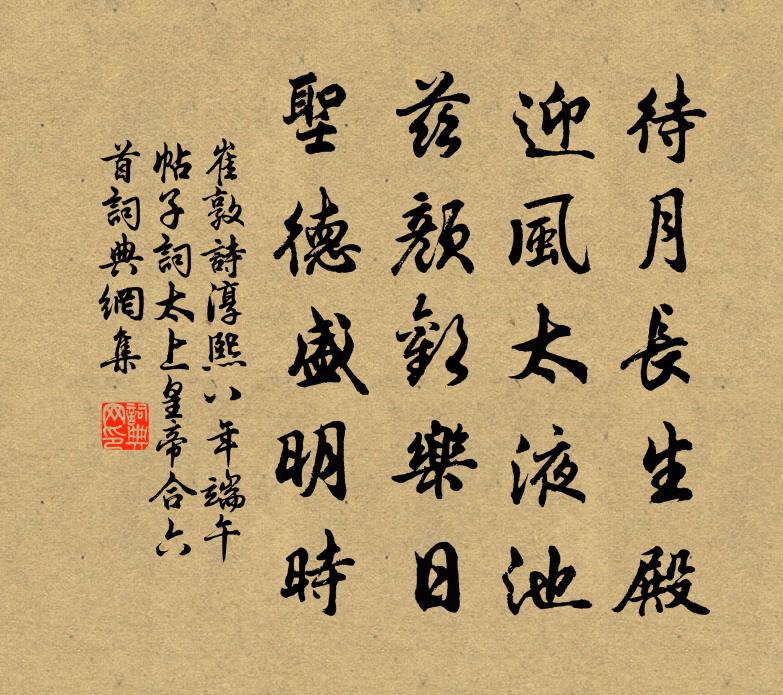 待月長生殿
迎風太液池
慈顏歡樂日
聖德盛明時
崔敦詩淳熙八年端午
帖子詞太上皇帝合六
首詞典網集
詞典网印